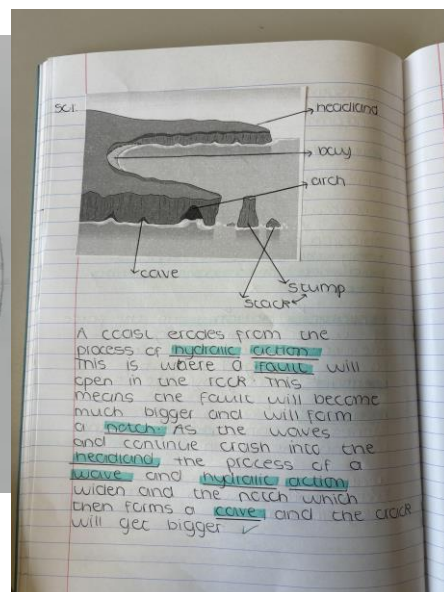 SC1.
headland
bay
arch
cave
stump
stack
A coast erodes from the
process of hydralic action
This is where a fault will
open in the rock. This
means the fault will become
much bigger and will form
a notch. As the waves
and continue crash into the
headland, the process of a
wave and hydralic action
widen and the notch which
then forms a cave and the crack
will get bigger